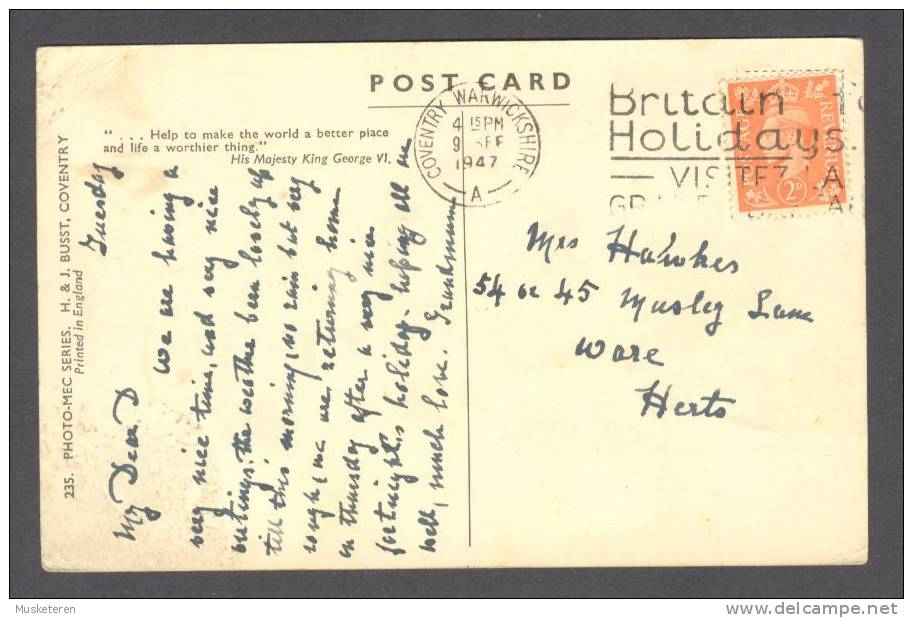 POST CARD
"... Help to make the world a better place
and life a worthier thing."
His Majesty King George VI.
235. PHOTO-MEC SERIES. H. & J. BUSST, COVENTRY
Printed in England
COVENTRY WARWICKSHIRE
4 15 PM
9 SEP
1947
A
Britain
Holidays.
VISITEZ LA
POSTAGE REVENUE
2D
Tuesday
My Dear D
we are having a
very nice time, and very nice
outings. the weather been lovely up
till this morning, no rain but very
rough, we are returning home
on thursday after a very nice
fortnight's holiday. hoping all are
well, much love. Grandmum
Mrs Hawkes
54 or 45 Musley Lane
Ware
Herts
Musketeren
delcampe.net